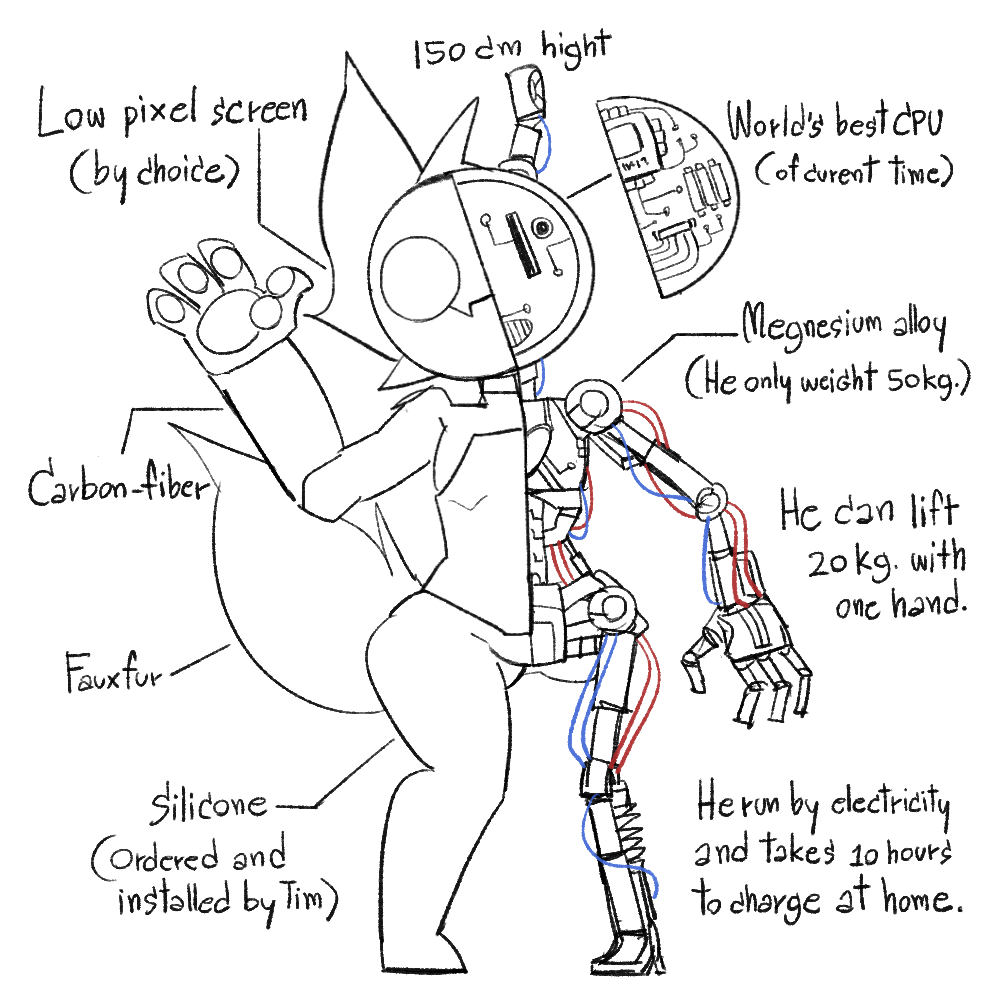 150 cm hight
Low pixel screen
(by choice)
World's best CPU
(of curent time)
Megnesium alloy
(He only weight 50kg.)
Carbon-fiber
He can lift
20kg. with
one hand.
Fauxfur
Silicone
(Ordered and
installed by Tim)
He run by electricity
and takes 10 hours
to charge at home.